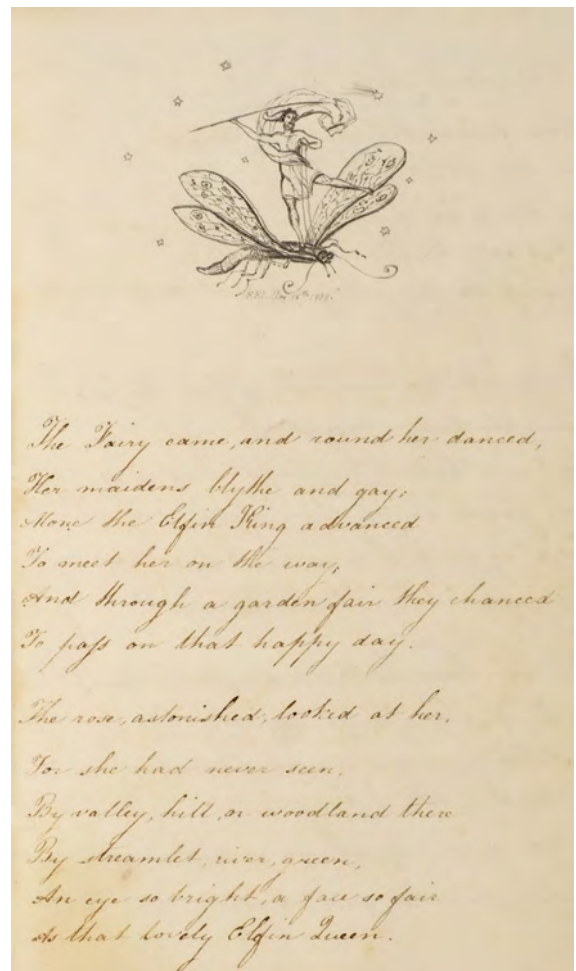 The Fairy came, and round her danced,
Her maidens blythe and gay;
Alone the Elfin King advanced
To meet her on the way;
And through a garden fair they chanced
To paſs on that happy day.
The rose, astonished, looked at her,
For she had never seen.
By valley, hill, or woodland there
By streamlet, river, green,
An eye so bright, a face so fair
As that lovely Elfin Queen.